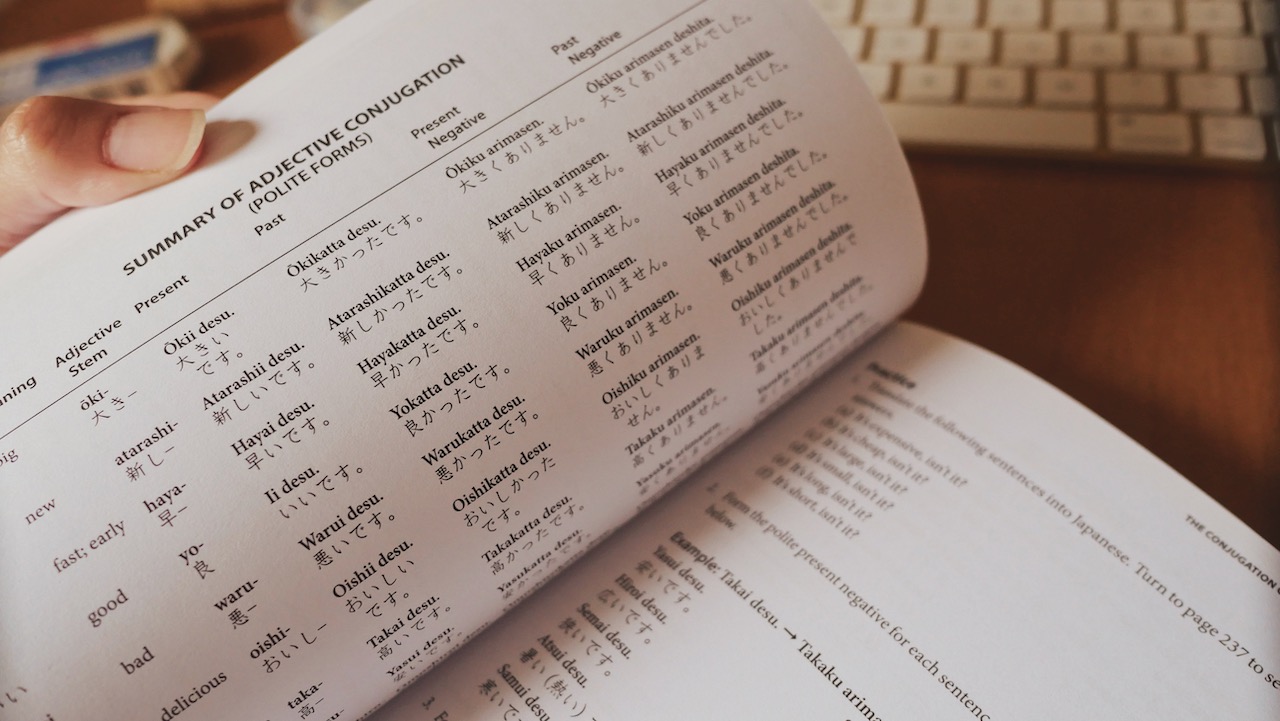 SUMMARY OF ADJECTIVE CONJUGATION
(POLITE FORMS)
Adjective Stem
Present
Past
Present Negative
Past Negative
ōki- Ōkii desu. Ōkikatta desu. Ōkiku arimasen. Ōkiku arimasen deshita.
大き– 大きいです。 大きかったです。 大きくありません。 大きくありませんでした。
new atarashi- Atarashii desu. Atarashikatta desu. Atarashiku arimasen. Atarashiku arimasen deshita.
新し– 新しいです。 新しかったです。 新しくありません。 新しくありませんでした。
fast; early haya- Hayai desu. Hayakatta desu. Hayaku arimasen. Hayaku arimasen deshita.
早– 早いです。 早かったです。 早くありません。 早くありませんでした。
good yo- Ii desu. Yokatta desu. Yoku arimasen. Yoku arimasen deshita.
良 いいです。 良かったです。 良くありません。 良くありませんでした。
bad waru- Warui desu. Warukatta desu. Waruku arimasen. Waruku arimasen deshita.
悪– 悪いです。 悪かったです。 悪くありません。 悪くありませんでした。
delicious oishi- Oishii desu. Oishikatta desu. Oishiku arimasen. Oishiku arimasen deshita.
おいし– おいしいです。 おいしかったです。 おいしくありません。 おいしくありませんでした。
taka- Takai desu. Takakatta desu. Takaku arimasen. Takaku arimasen deshita.
高– 高いです。 高かったです。 高くありません。
Yasui desu. Yasukatta desu.
THE CONJUGATION
Practice
1. Translate the following sentences into Japanese. Turn to page 237 to
answers.
(a) It's expensive, isn't it?
(b) It's cheap, isn't it?
(c) It's large, isn't it?
(d) It's small, isn't it?
(e) It's long, isn't it?
(f) It's short, isn't it?
2. Form the polite present negative for each
below.
Example: Takai desu. → Takaku
Yasui desu.
安いです。
Hiroi desu.
広いです。
Semai desu.
狭いです。
Atsui desu.
暑い(熱い)
Samui desu.